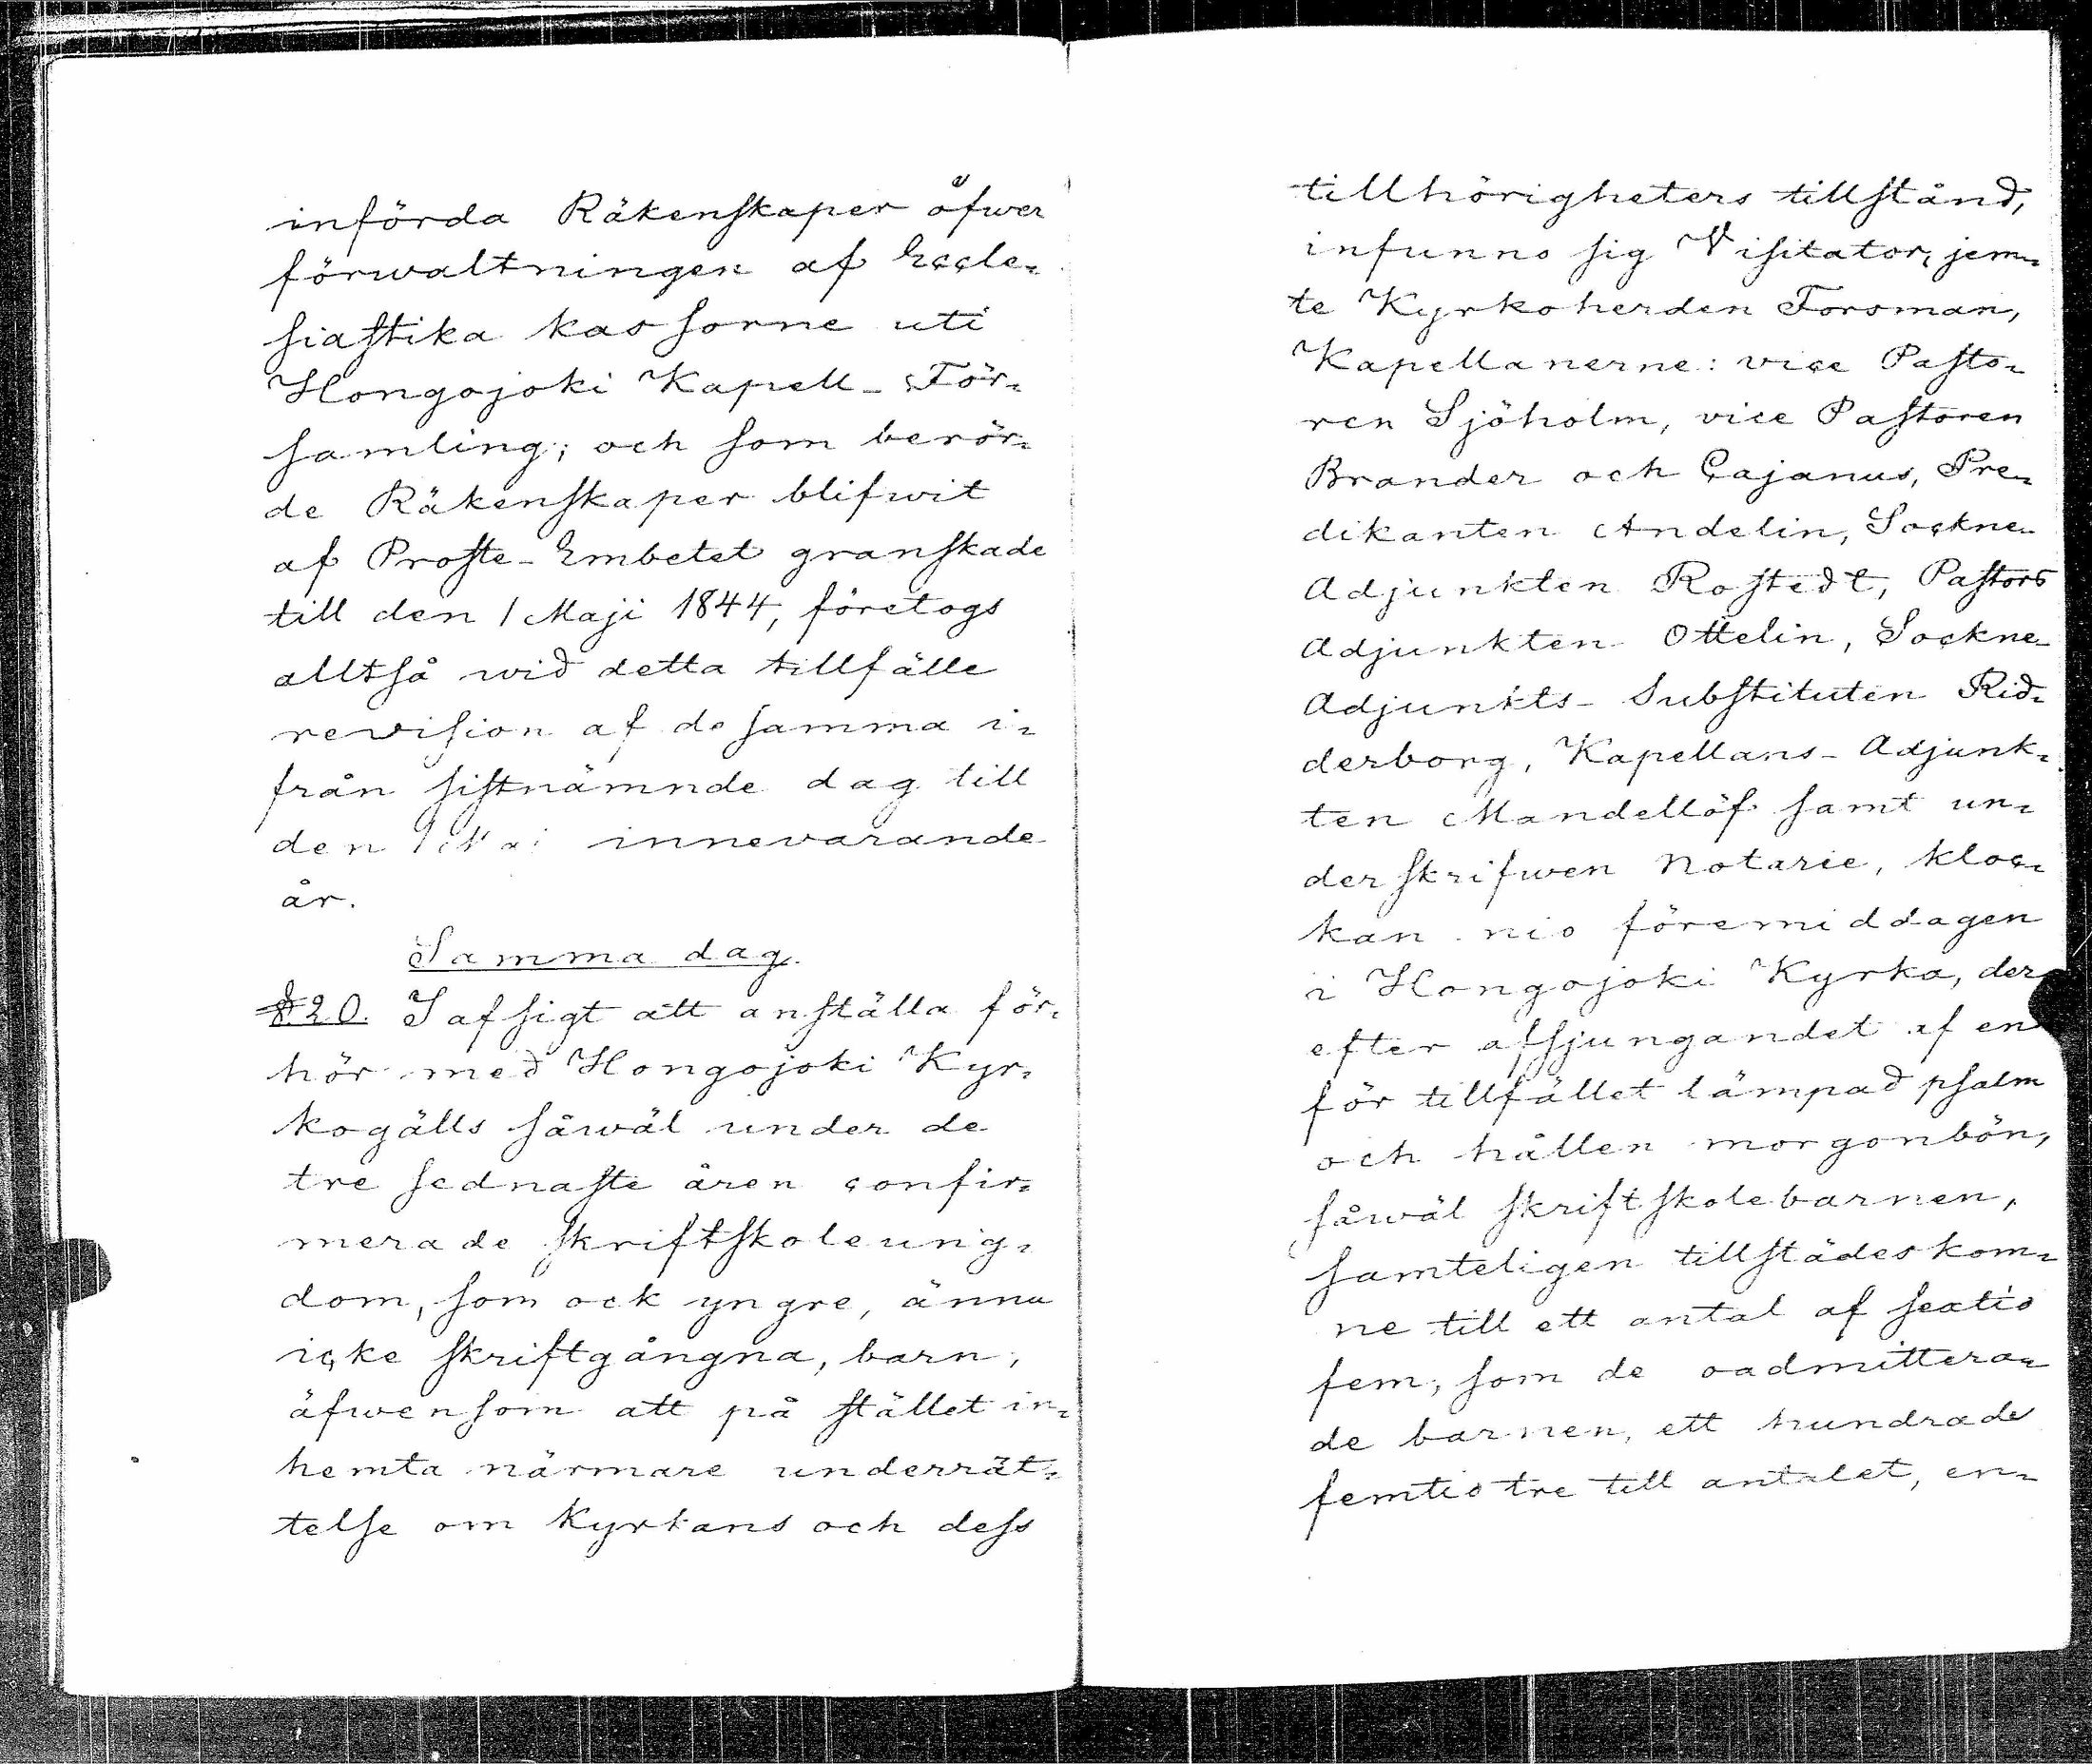 införda Räkenskaper öfwer
förwaltningen af Eccle-
siastika kassorne uti
Hongojoki Kapell-För-
samling; och som berör-
de Räkenskaper blifwit
af Proste-Embetet granskade
till den 1 Maji 1844, företogs
alltså wid detta tillfälle
revision af desamma i-
från sistnämnde dag till
den 1 Mai innevarande
år.
Samma dag.
§ 20. I afsigt att anställa för-
hör med Hongojoki Kyr-
kogälls såwäl under de
tre sednaste åren confir-
merade skriftskoleung-
dom, som ock yngre, ännu
icke skriftgångna, barn,
äfwensom att på stället in-
hemta närmare underrät-
telse om Kyrkans och dess
tillhörigheters tillstånd,
infunno sig Visitator, jem-
te Kyrkoherden Forsman,
Kapellanerne: vice Pasto-
ren Sjöholm, vice Pastoren
Brander och Cajanus, Pre-
dikanten Andelin, Sockne-
Adjunkten Rostedt, Pastors
Adjunkten Ottelin, Sockne-
Adjunkts-Substituten Rid-
derborg, Kapellans-Adjunk-
ten Mandellöf samt un-
derskrifwen Notarie, kloc-
kan nio föremiddagen
i Hongojoki Kyrka, der
efter afsjungandet af en
för tillfället lämpad psalm
och hållen morgonbön,
såwäl skriftskolebarnen,
samteligen tillstädeskom-
ne till ett antal af sextio
fem, som de oadmittera-
de barnen, ett hundrade
femtio tre till antalet, en-